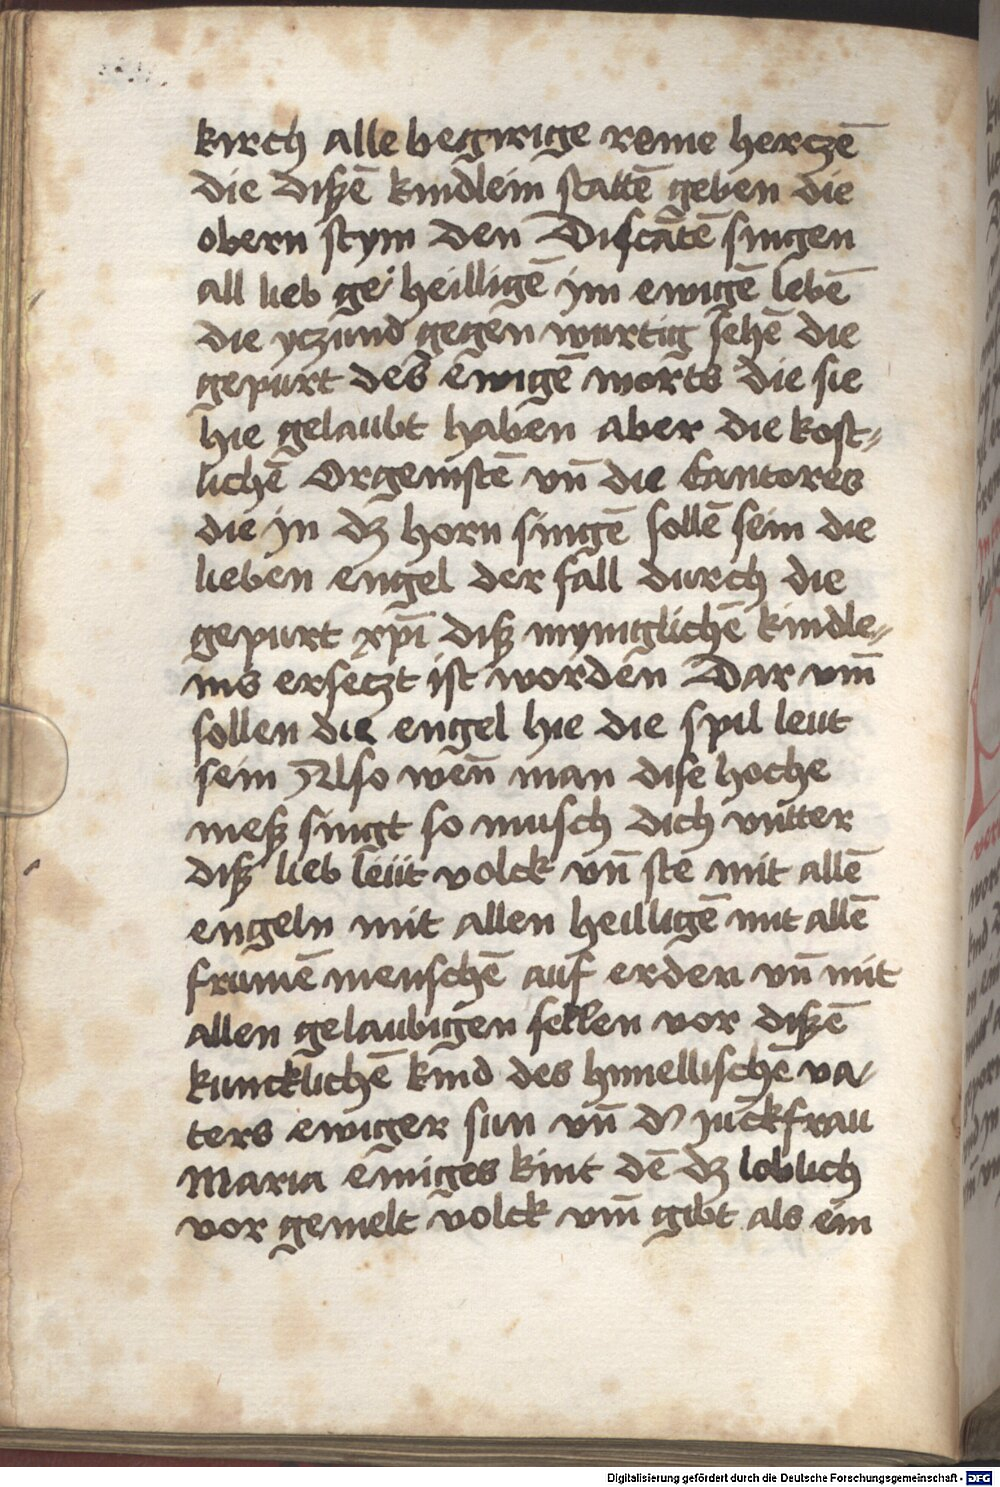 kirch alle begirige reine herczē
die dißē kindlein stattē geben die
obern stym den Discātē singen
all lieb ge heilligē jm ewigē lebē
die yczund gegen wurtig sehē die
gepurt des ewigē worts die sie
hie gelaubt haben aber die kost„
lichē Orgenistē vn̄ die Cantores
die jn dz horn singē sollē sein die
lieben engel der fall durch die
gepurt xp̄i diß myniglichē kindle„
ins ersetzt ist worden Dar vm̄
sollen die engel hie die spil leut
sein Also wen̄ man dise hoche
meß singt so musch dich vntter
diß lieb leüt volck vn̄ ste mit allē
engeln mit allen heilligē mit allē
frumē menschē auf erden vn̄ mit
allen gelaubigen sellen vor dißē
kuncklichē kind des himellischē va/
ters ewiger sun vn̄ d' juckfrau
Maria einiges kint dē dz loblich
vor gemelt volck vm̄ gibt als ein
Digitalisierung gefördert durch die Deutsche Forschungsgemeinschaft - DFG